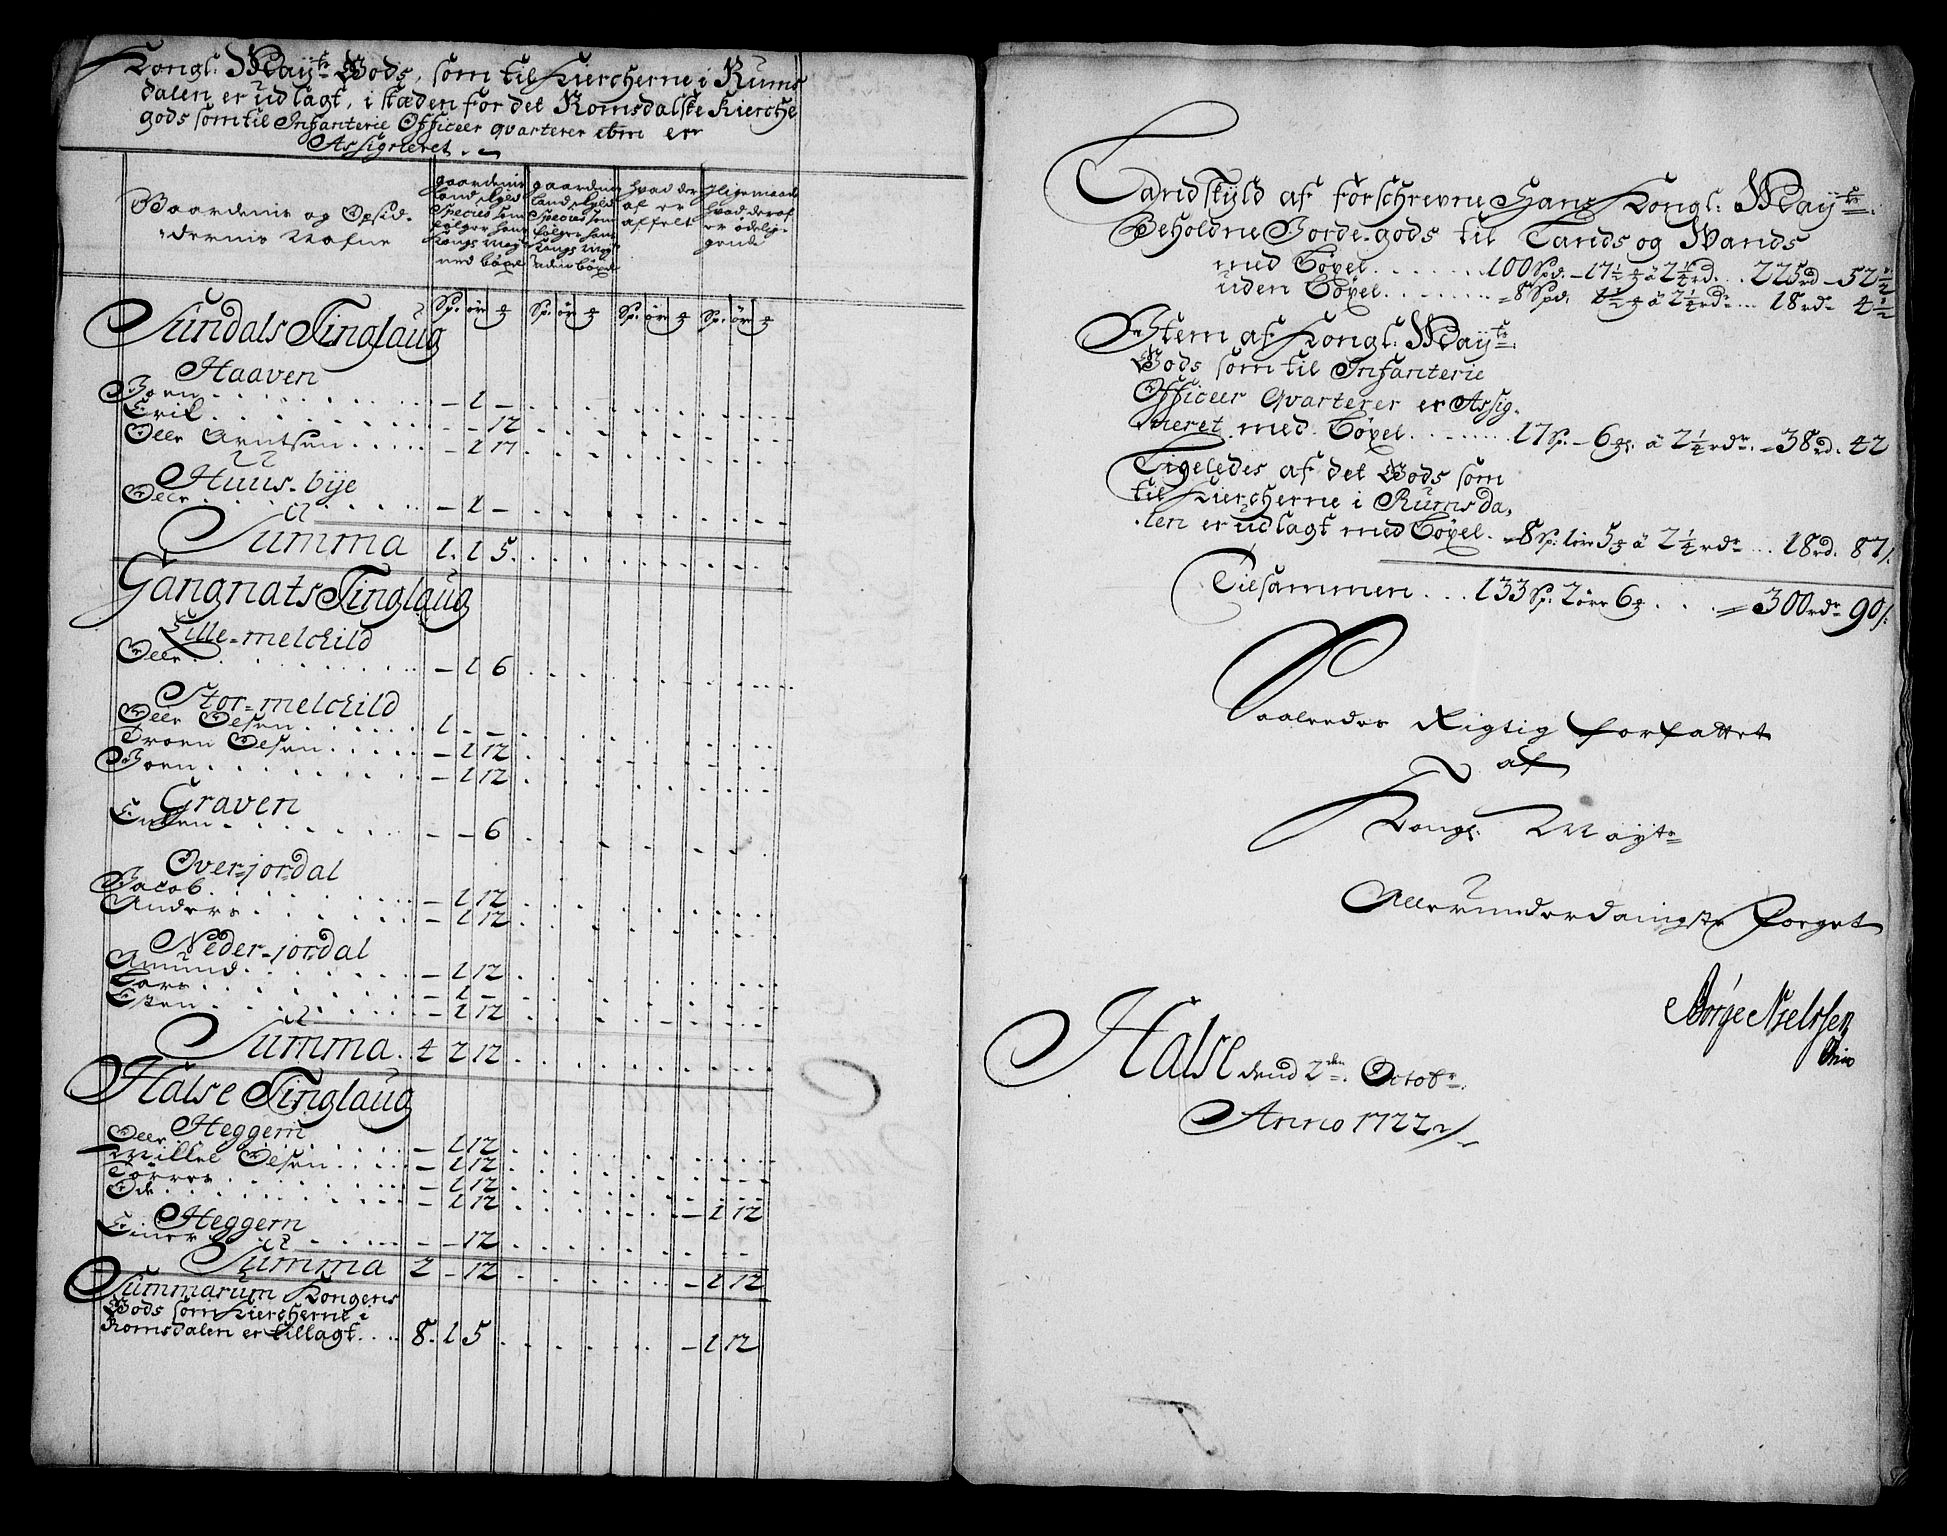 Kongl: Mayts Gods, som til Kiercherne i Rums
dalen er udlagt, i stæden for det Romsdalske Kierche
gods som til Infanterie Officeer qvarterer er
Assigneret.
Gaardenis og Opsid-
dernis Nafne
gaardenis land skyld Species som følger hans Kongs May med böxel
gaardenis land skyld Species som følger hans Kongs May uden böxel
hvad der af er affelt
Iligemaade hvad deraf er ödelig-gende
Sp: ör ꝗ Sp: ör ꝗ Sp: ör ꝗ Sp: ör ꝗ
Sundals Tinglaug
Haaven
Joen - 1 -
Erik - - 12
Oele Arntsen - 1 17
Huus-bÿe
Oele - 1 -
Summa 1. 1 5.
Gangnats Tinglaug
Lille-melchild
Oele - 1 6
Stor-melchild
Oele Oelsen 1 - -
Troen Oelsen - 1 12
Joen - 1 12
Graven
- - 6
Over-jordal
Jacob - 1 12
Anders - 1 12
Neder-jordal
Amund - 1 12
Lars - 1 -
Esten - 1 12
Summa 4 2 12
Halse Tinglaug
Heggem
Oele - 1 12
Millel Oelsen - 1 12
Torres - 1 12
Ole - 1 12 - 1 12
Heggem
Einer - - 12
Summa 2 - 12 - 1 12
Summarum Kongens
Gods som Kiercherne i
Romsdalen er tillagt 8. 1 5 - 1 12
Landskÿld af forschrevne Hans Kongl: Maÿts
Beholdne Jorde-gods til Lands og Wands
med Böxel 100 Spd. - 17½ ꝗ à 2¼ rd. 225 rd - 52½
uden Böxel 8 Spd. 1½ ꝗ à 2¼ rdr 18 rdr 4½
Item af Kongl: Mayts
Gods som til Infanterie
Officeer Qvarterer er Assig-
neret med Böxel 17 Sp. - 6 ꝗ. à 2¼ rdr. = 38 rd. 42
Ligeledes af det Gods som
til Kiercherne i Rumsda-
len er udlagt med Böxel. 8 Sp: 1 ör 5 ꝗ à 2¼ rdr 18 rd. 87/.
Tilsammen 133 Sp: 2 öre 6 ꝗ = 300 rdr 90/.
Saaledes Rigtig forfattet
af
Kongl: Mayts
Allerunderdanigste Foeget
Börge Nielssen
Halse dend 2den Octobr.
Anno 1722